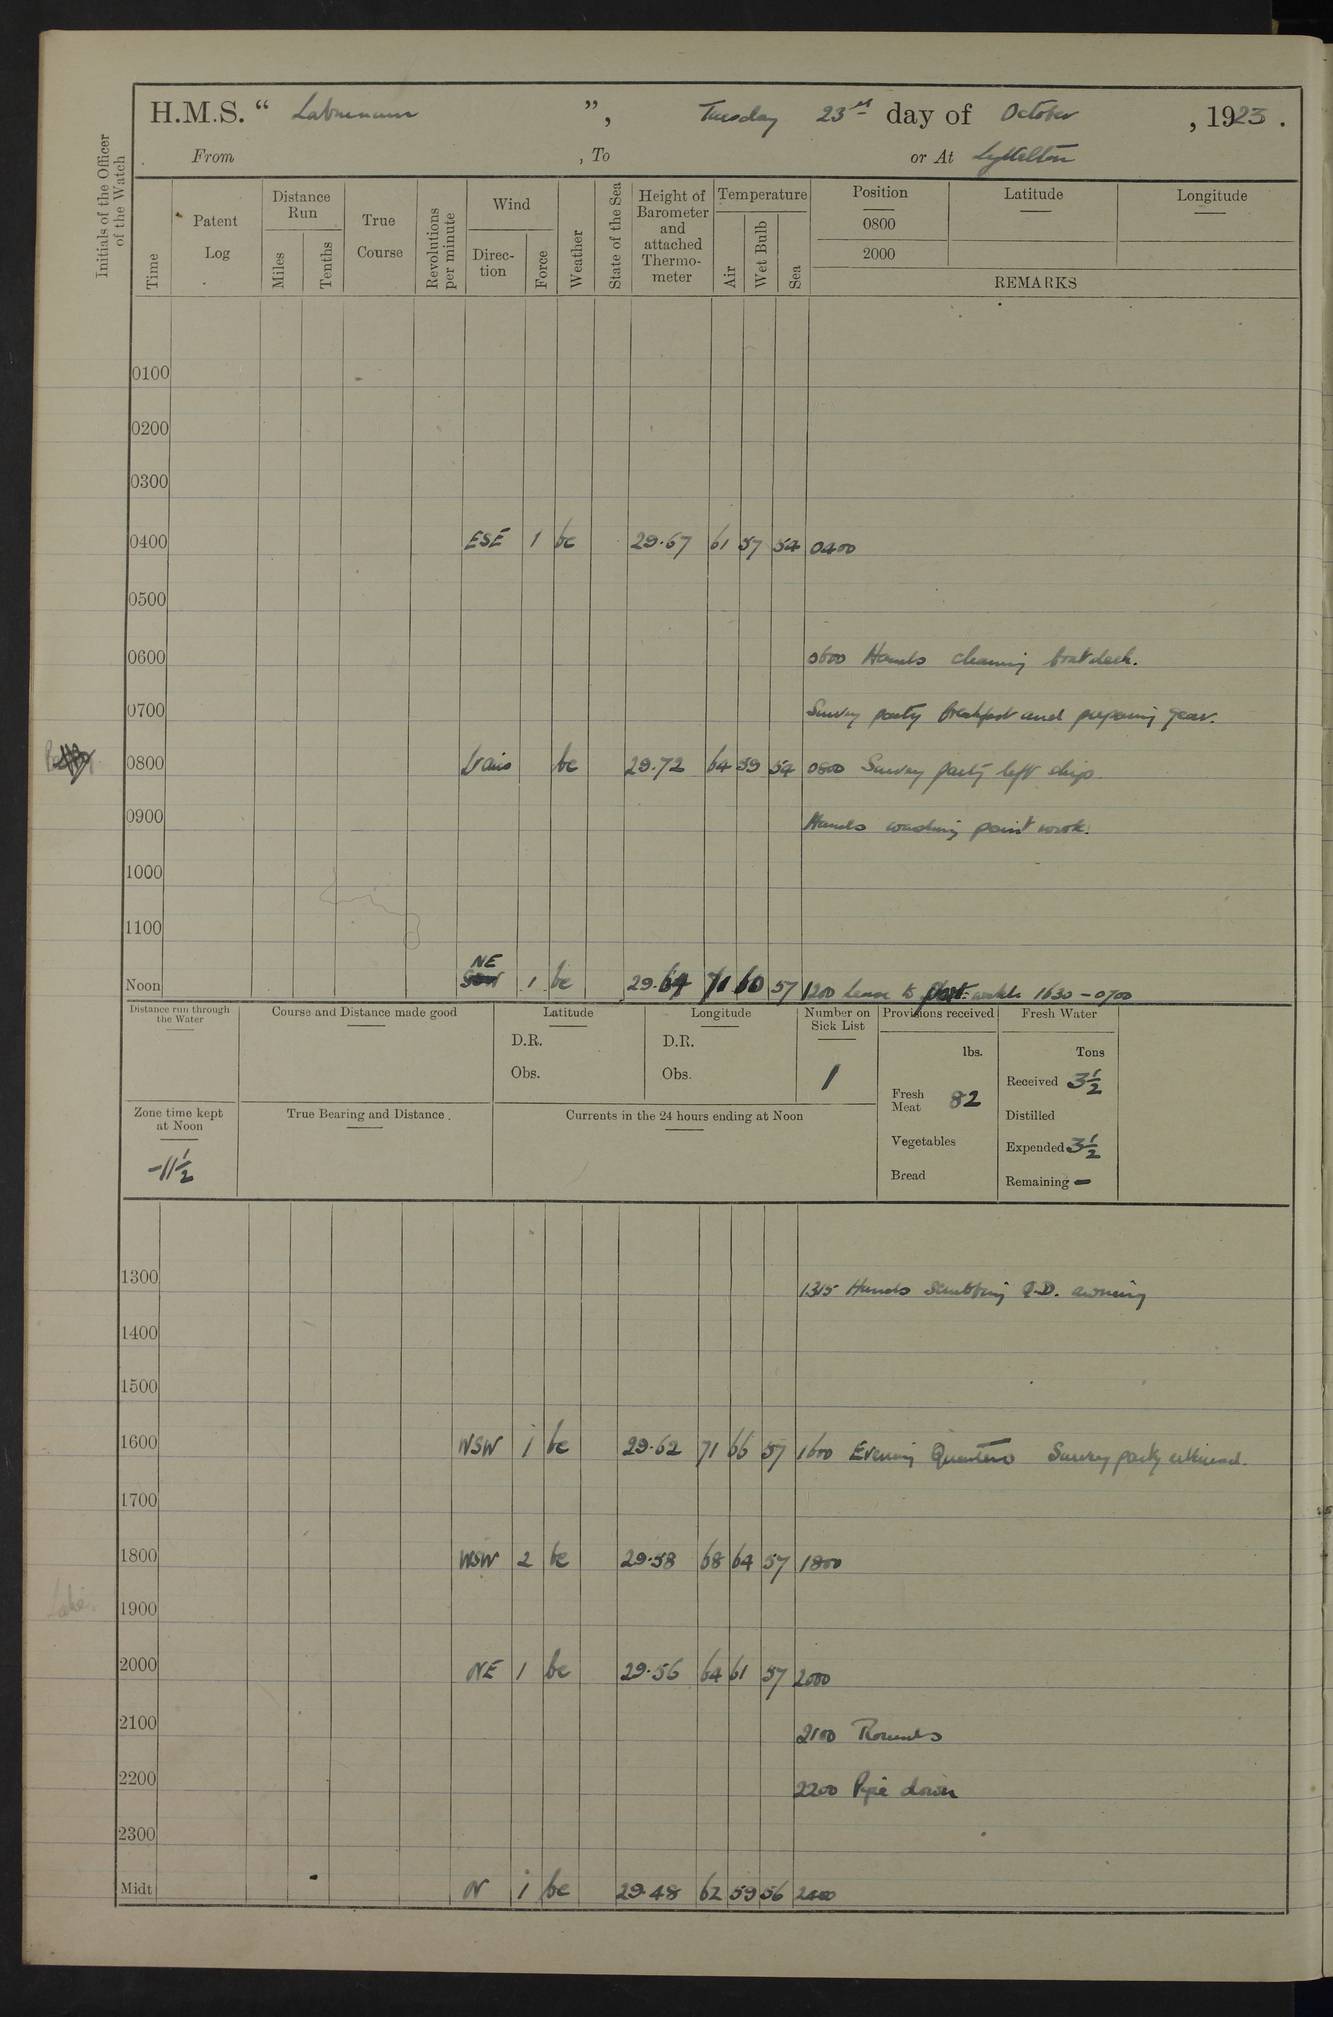 H.M.S. “ Laburnum ”, Tuesday 23rd day of October , 1923 .
From , To or At Lyttelton
Initials of the Officer of the Watch
Time
Patent Log
Distance Run
Miles
Tenths
True Course
Revolutions per minute
Wind
Direc- tion
Force
Weather
State of the Sea
Height of Barometer and attached Thermo- meter
Temperature
Air
Wet Bulb
Sea
Position Latitude Longitude
0800
2000
REMARKS
0100
0200
0300
0400 ESE 1 bc 29.67 61 57 54 0400
0500
0600 0600 Hands cleaning boat deck.
0700 Survey party breakfast and preparing gear.
0800 Vairs bc 29.72 64 59 54 0800 Survey party left ship.
0900 Hands washing paint work.
1000
1100
NE
Noon 1 bc 29.64 71 60 57 1200 Leave to Port watch 1630 - 0700
Distance run through the Water
Course and Distance made good
Latitude
D.R.
Obs.
Longitude
D.R.
Obs.
Number on Sick List
1
Provisions received
lbs.
Fresh Meat 82
Vegetables
Bread
Fresh Water
Tons
Received 3½
Distilled
Expended 3½
Remaining -
Zone time kept at Noon
-11½
True Bearing and Distance .
Currents in the 24 hours ending at Noon
1300 1315 Hands scrubbing Q.D. awning
1400
1500
1600 WSW 1 bc 29.62 71 66 57 1600 Evening Quarters Survey party returned.
1700
1800 WSW 2 bc 29.58 68 64 57 1800
1900
2000 NE 1 bc 29.56 64 61 57 2000
2100 2100 Rounds
2200 2200 Pipe down
2300
Midt N 1 bc 29.48 62 59 56 2400